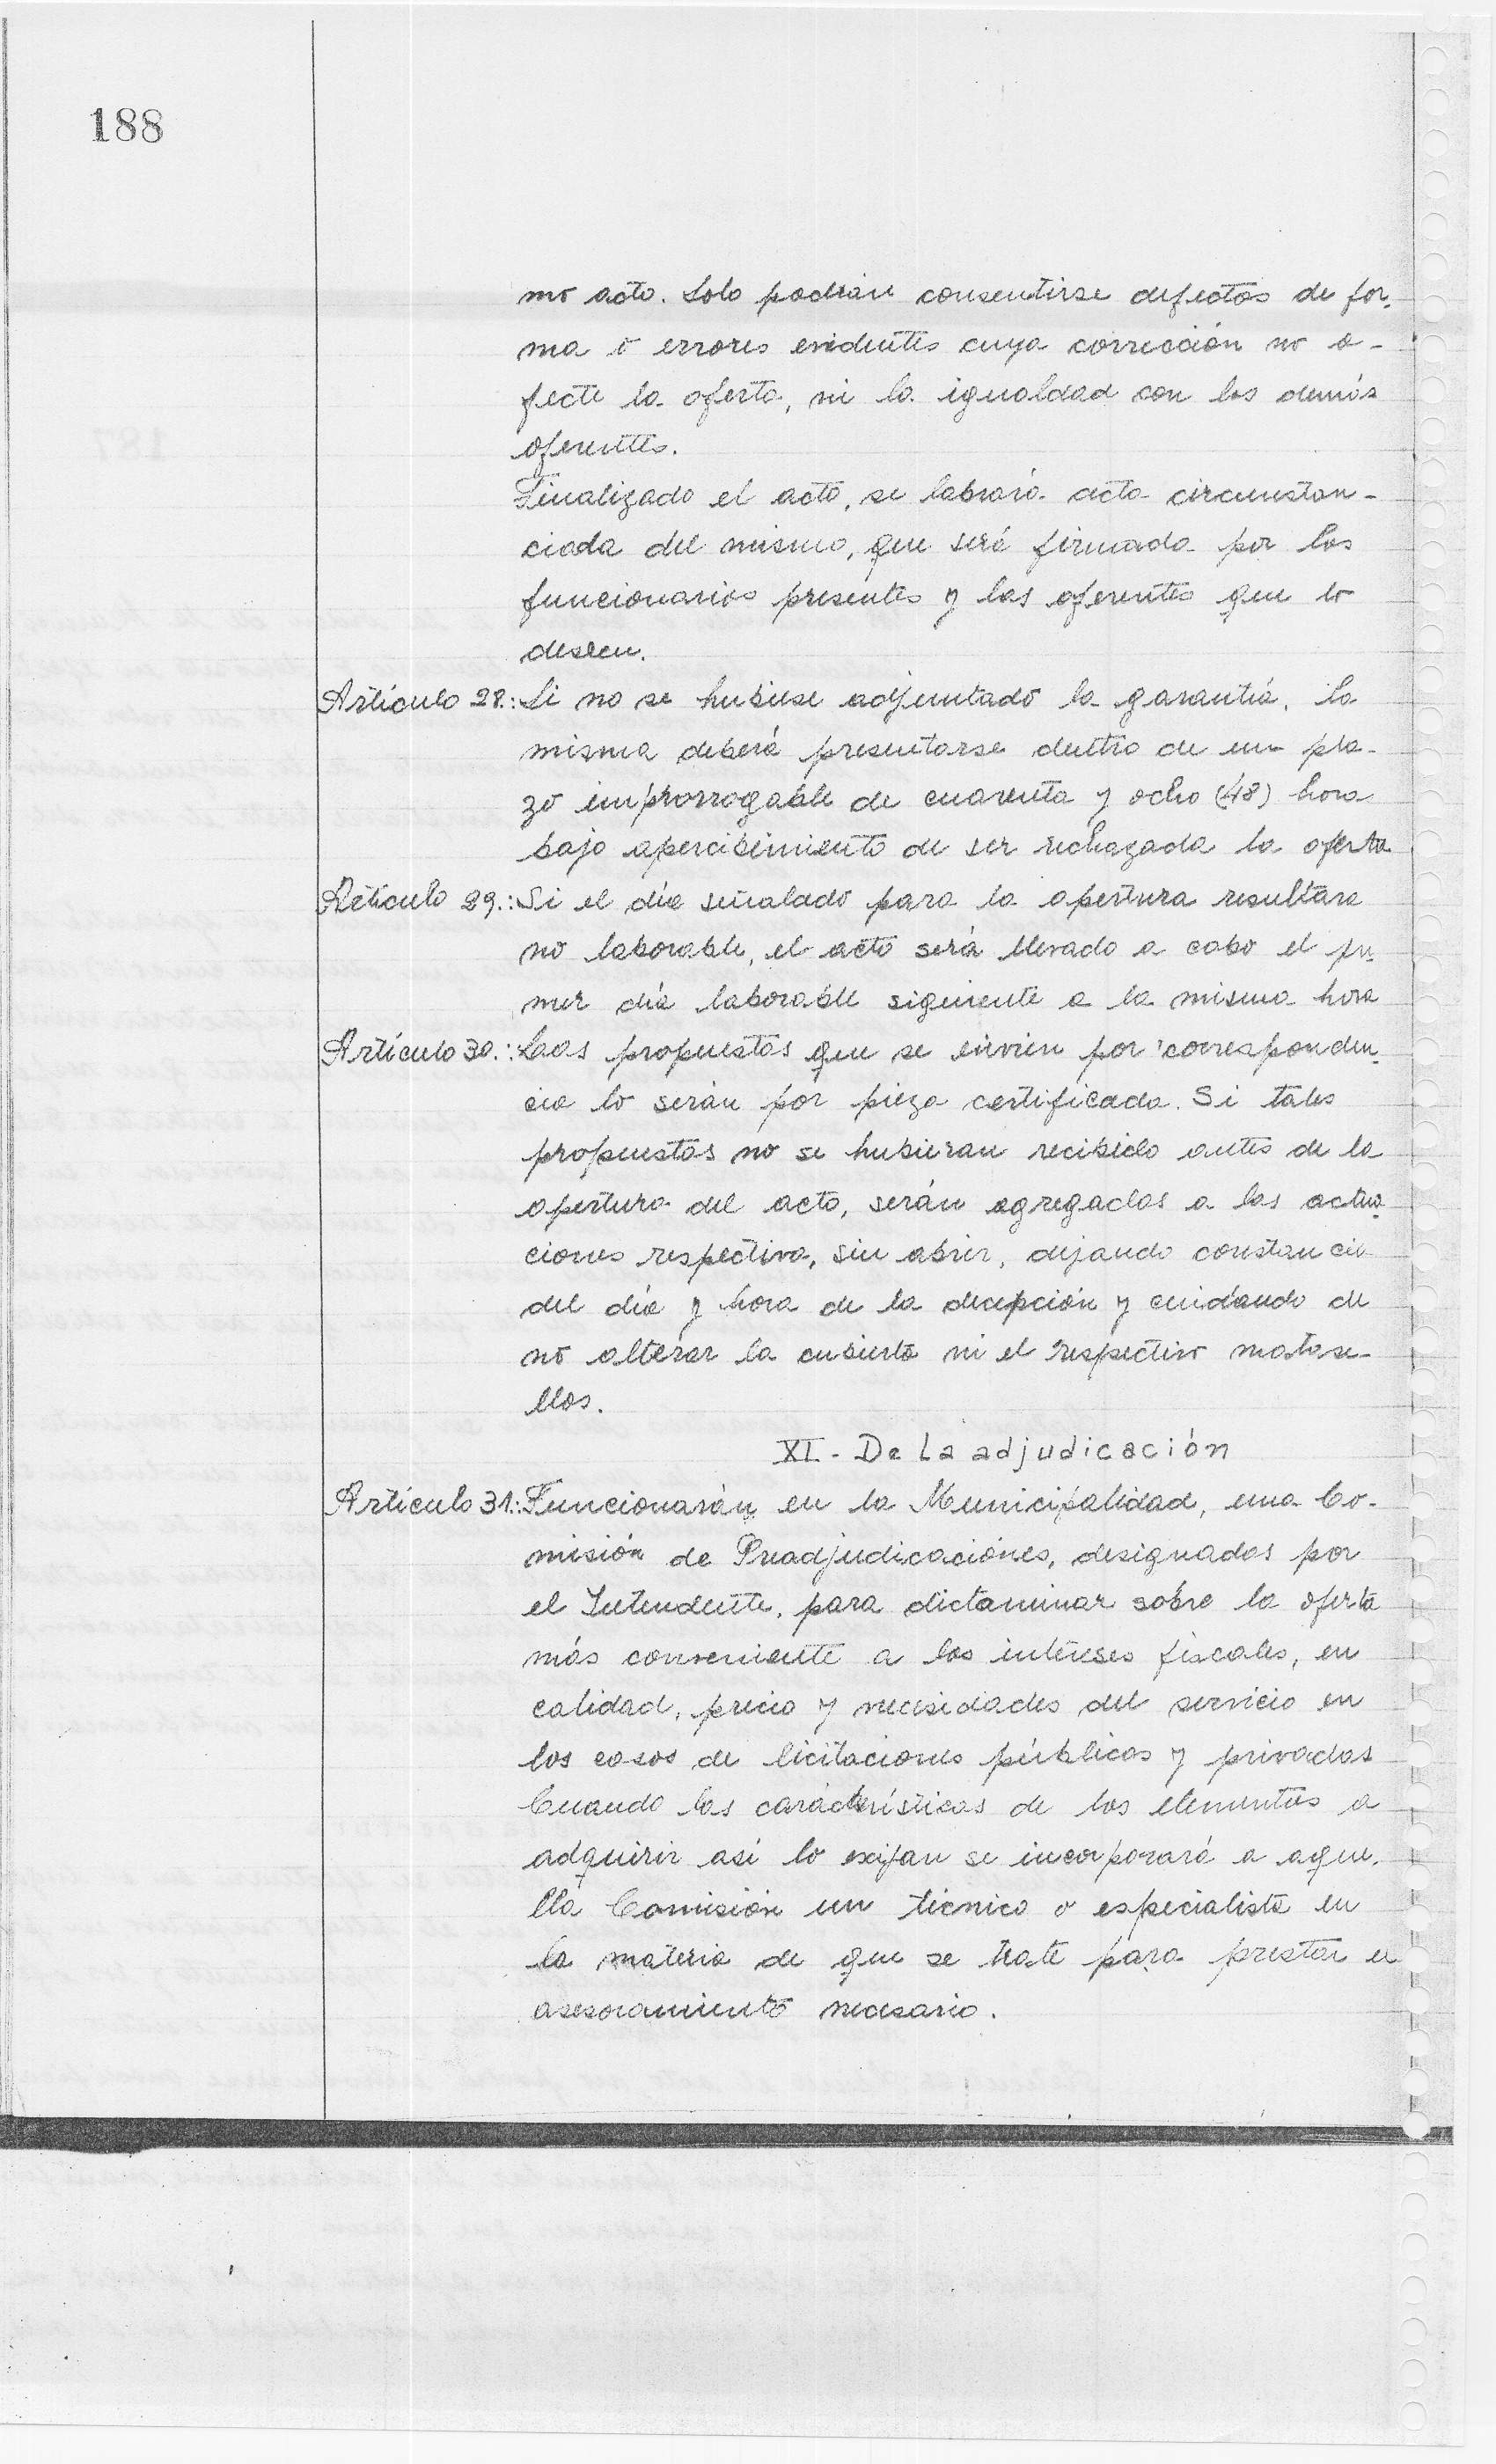 188
mo acto. Solo podrán consentirse defectos de for-
ma o errores evidentes cuya corrección no a-
fecte la oferta, ni la igualdad con los demás
oferentes.
Finalizado el acto, se labrará acta circunstan-
ciada del mismo, que será firmada por los
funcionarios presentes y los oferentes que lo
deseen.
Artículo 28.: Si no se hubiese adjuntado la garantía, la
misma deberá presentarse dentro de un pla-
zo improrrogable de cuarenta y ocho (48) hora
bajo apercibimiento de ser rechazada la oferta
Artículo 29.: Si el día señalado para la apertura resultara
no laborable, el acto será llevado a cabo el pri-
mer día laborable siguiente a la misma hora
Artículo 30.: Laas propuestas que se envien por corresponden-
cia lo serán por pieza certificada. Si tales
propuestas no se hubieran recibido antes de la
apertura del acto, serán agregadas a las actua-
ciones respectiva, sin abrir, dejando constancia
del día y hora de la decepción y cuidando de
no alterar la cubierta ni el respectivo matase-
llos.
XI - De la adjudicación
Artículo 31.: Funcionarán en la Municipalidad, una Co-
misión de Preadjudicaciones, designados por
el Intendente, para dictaminar sobre la oferta
más conveniente a los intereses fiscales, en
calidad, precio y necesidades del servicio en
los casos de licitaciones públicas y privadas
Cuando las carácterísticas de los elementos a
adquirir así lo exijan se incorporará a aque-
lla Comisión un técnico o especialista en
la materia de que se trate para prestar el
asesoramiento necesario.